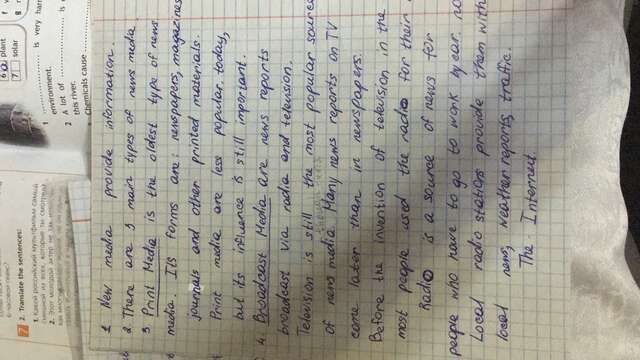 1 New media provide information.
2. There are 3 main types of news media
3 Print Media is the oldest type of news
media Its forms are: newspapers, magazines
journals and other printed materials.
Print media are less popular today,
but its influence is still important.
4. Broadcast Media are news reports
broadcast via radio and television.
Television is still the most popular source
of news media Many news reports on TV
come later than in newspapers.
Before the invention of television in the
most people used the radio for their
Radio is a source of news for
people who have to go to work by car.
Local radio stations provide them with
local news, weather reports, traffic.
The Internet
6 plant
7 solar
is very harm
environment.
2 A lot of
is
this river.
Chemicals cause
7 2. Translate the sentences:
1. Какой российский мультфильм самый